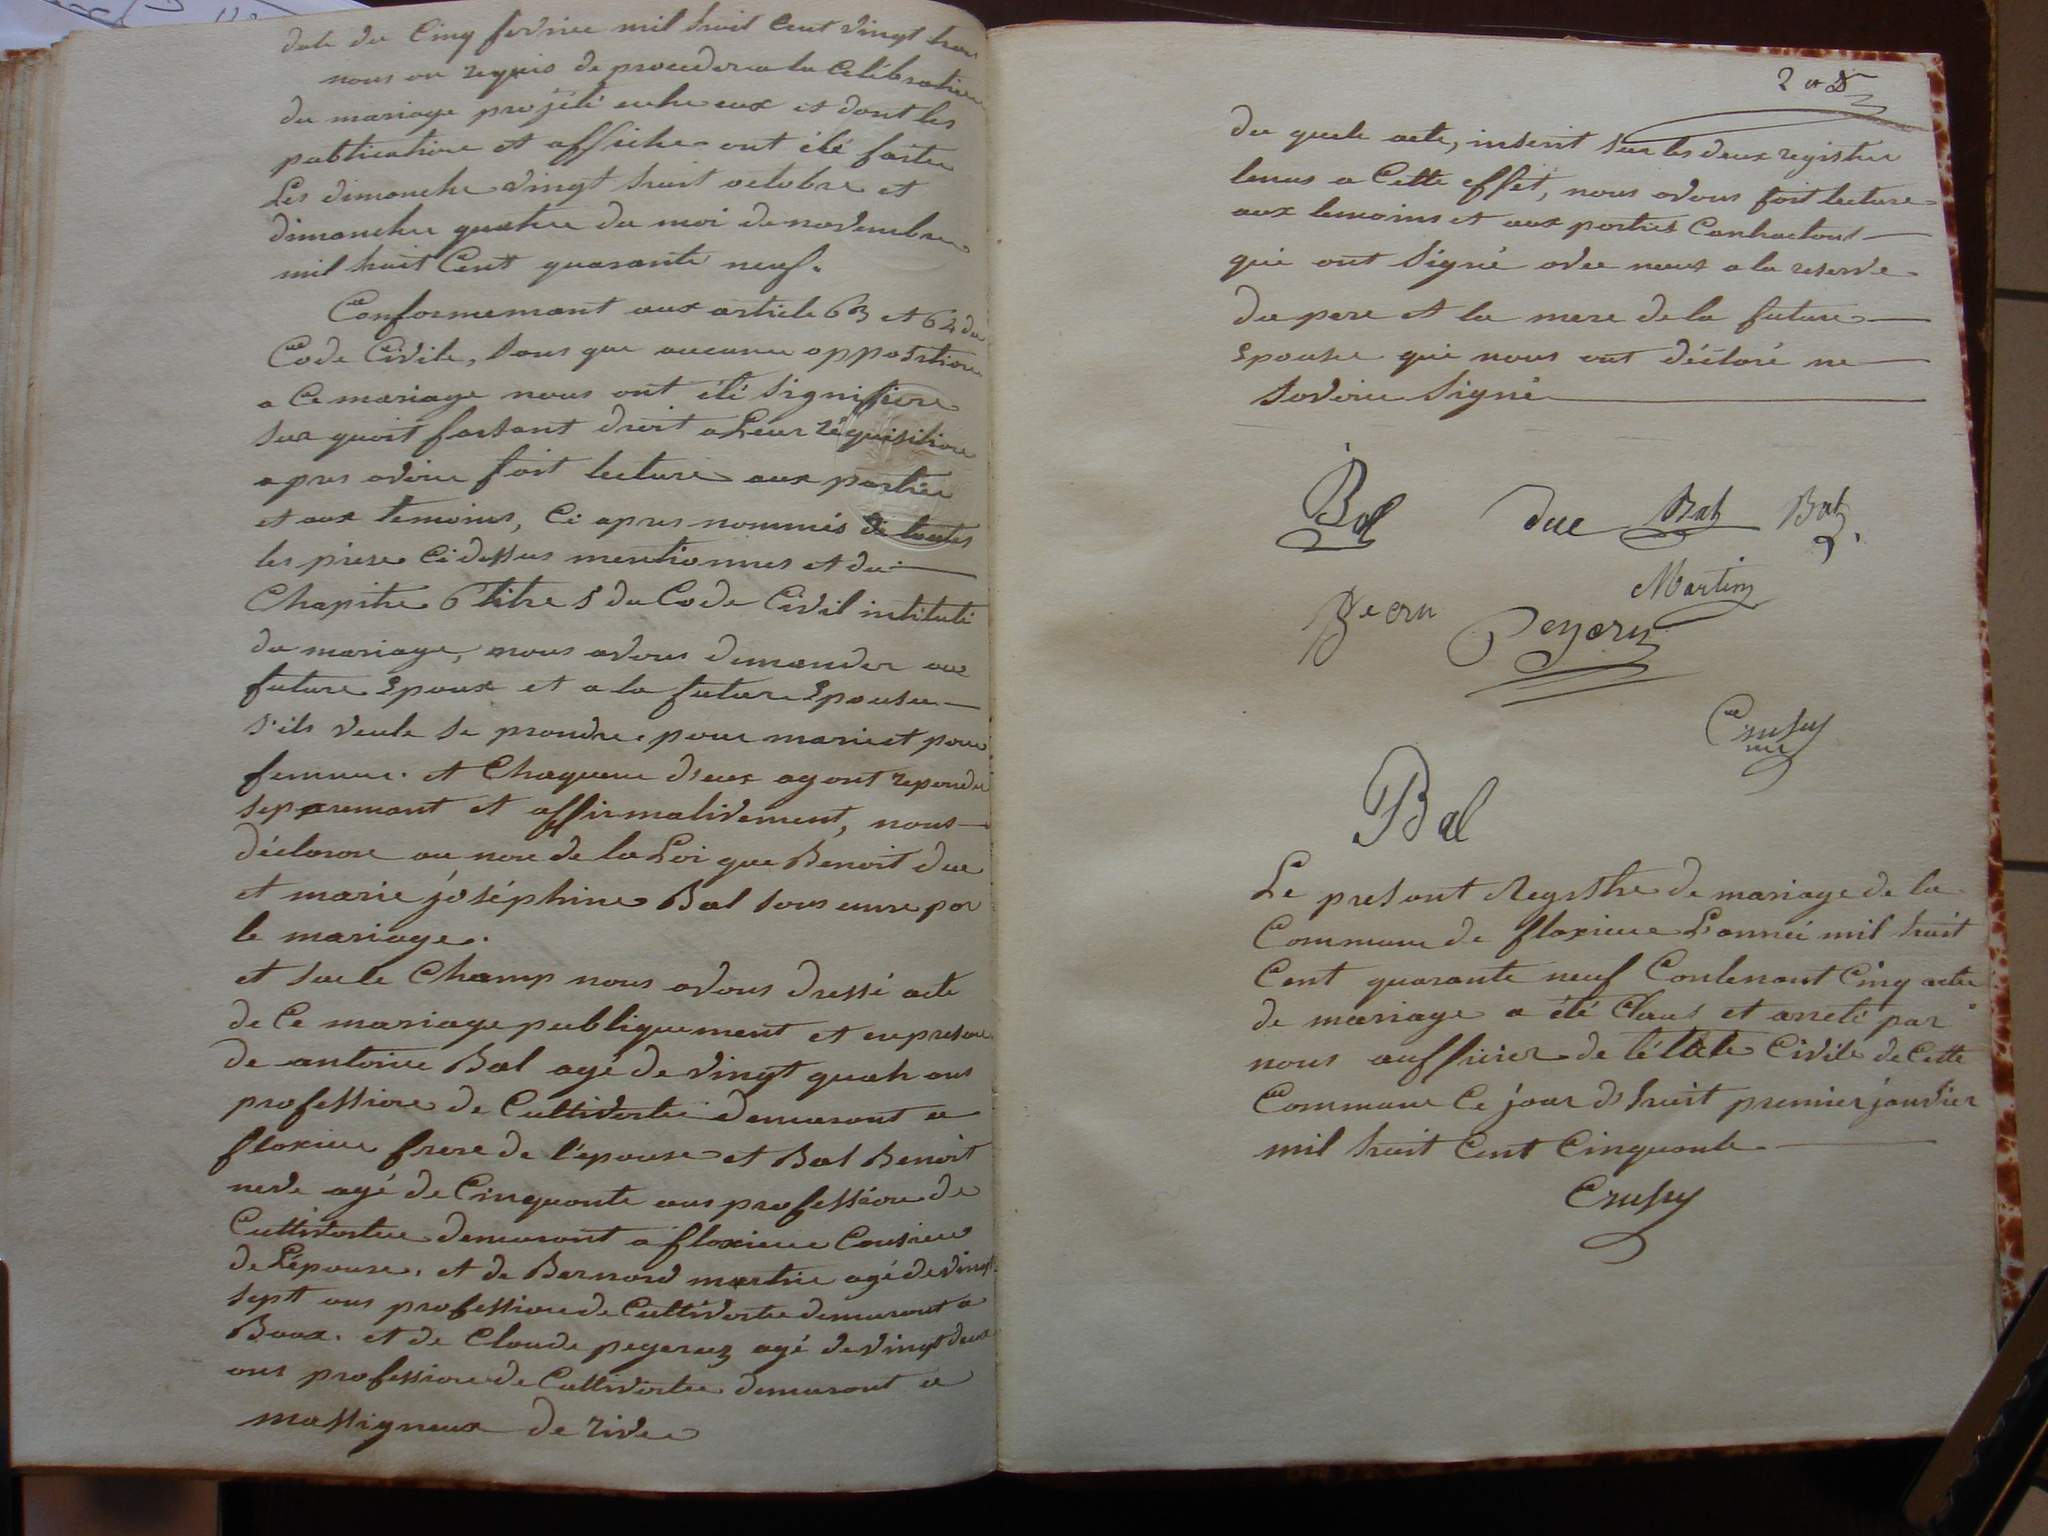 date du Cinq fevrier mil huit Cent vingt trois
nous on requis de proceder a la Celébration
du mariage projété entre eux et dont les
publication et affiche ont été faite
Les dimanche vingt huit octobre et
dimanche quatre du moi de novembre
mil huit Cent quarante neuf.
Conformemant aux article 63 et 64 du
Code Civile, sans que aucune opposition
a Ce mariage nous ont été signifiere
sur quoit faisant droit a Leur réquisition
apres avoire fait lecture aux partier
et aux temoins, Ci apres nommés de toutes
les piese Ci dessus mentionnes et du
Chapitre 6 titre 5 du Code Civil intitulé
du mariage, nous avons demander au
future Epoux et a la future Epouse
s'ils veule se prondre pour marie et pour
femme. et Chaqune d'eux ayant repondu
separemant et affirmativement, nous
déclaron au non de la Loi que Benoit duc
et marie joséphine Bal sons unie par
le mariage.
et sur le Champ nous avons dressé acte
de Ce mariage publiquement et en presence
de antoine Bal agé de vingt quatr ans
profession de Cultivateur demeurant a
floxieu frere de l'épouse et Bal Benoit
neve agé de Cinquante ans profession de
Cultivateur demeurant a floxieu Cousien
de L'épouse. et de Bernard martin agé de vingt
sept ans profession de Cultivateur demeurant a
Boux. et de Claude peyeron agé de vingt deux
ans profession de Cultivateur demeurant a
massigneux de rive
du quele acte, inscrit sur les deux registre
tenus a Cette effet, nous avons fait lecture
aux temoins et aux parties Contractant
qui ont signé avec nous a la reserve
du pere et la mere de la future
epouse qui nous ont déclaré ne
savoire signé
Bal duc Bal Bal
Martin
Peyeron
Crussy
Bal
Le present Registre de mariage de la
Commune de floxieu L'année mil huit
Cent quarante neuf Contenant Cinq acte
de mariage a été Claus et areté par
nous aufficier de l'état Civile de Cette
Commune Ce jour d'huit premier janvier
mil huit Cent Cinquante
Crussy